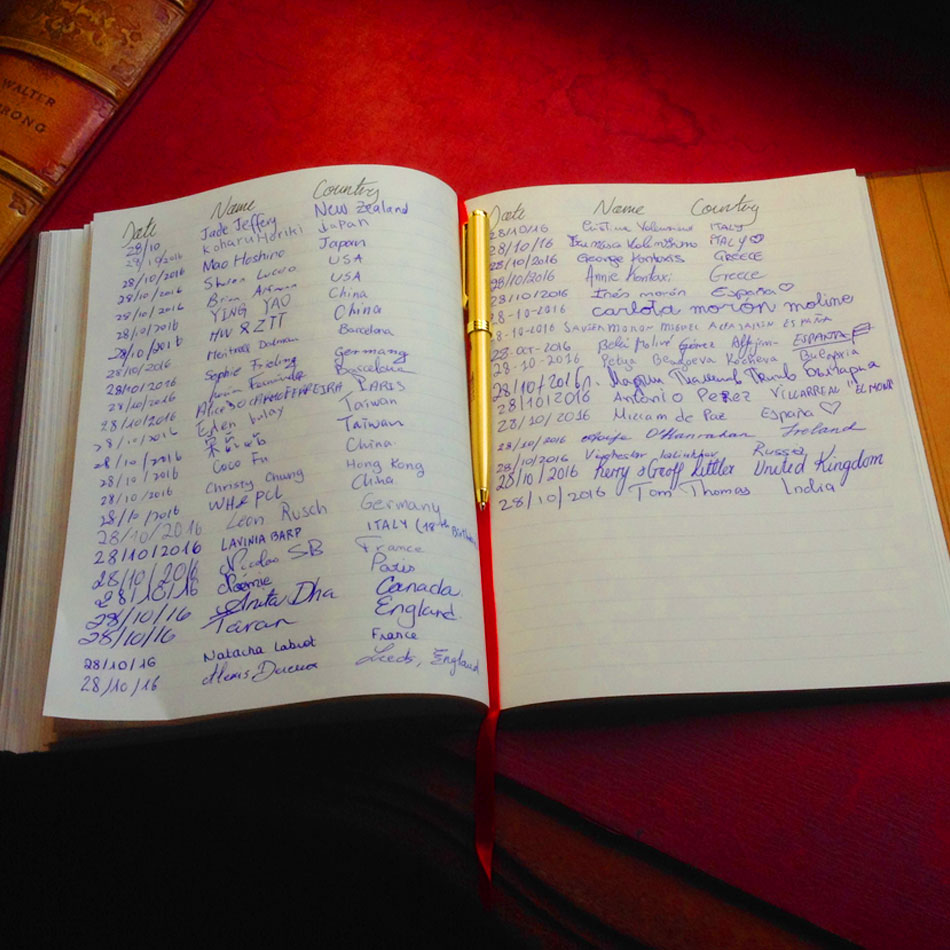 WALTER
RONG
Date Name Country
28/10 Jade Jeffery New Zealand
28/10/2016 Koharu Horiki Japan
28/10/2016 Mao Hoshino Japan
28/10/2016 Sharon Lucero USA
28/10/2016 Brian USA
28/10/2016 YING YAO China
28/10/2016 HW & ZTT China
28/10/2016 Barcelona
28/10/2016 Sophie Germany
28/10/2016 Fernández Barcelona
28/10/2016 Alice PARIS
28/10/2016 Taiwan
28/10/2016 Taiwan
28/10/2016 Coco Fu China
28/10/2016 Christy Chung Hong Kong
28/10/2016 WH & PCL China
28/10/2016 Leon Rusch Germany
28/10/2016 LAVINIA BARP ITALY (18th Birthday
28/10/2016 Nicolas SB France
28/10/16 Noémie Paris
28/10/16 Anita Dha Canada
28/10/16 Taran England
28/10/16 Natacha Labrot France
28/10/16 Alexis Leeds, England
Date Name Country
28/10/16 Cristina ITALY
28/10/16 ITALY ♡
28/10/2016 George Kontaxis GREECE
28/10/2016 Annie Kontaxi Greece
28/10/2016 Inés morón España ♡
28-10-2016 carlota morón moline
28-10-2016 MORON MIGUEL ESPAÑA
28-oct-2016 Belé Gómez ESPAÑA
28-10-2016 Petya Kocheva
28/10/2016г. България
28/10/2016 Antonio Perez VILLARREAL "EL
28/10/2016 Miriam de Paz España ♡
28/10/2016 O'Hanrahan Ireland
28/10/2016 Russia
28/10/2016 Kerry & Geoff Kettler United Kingdom
28/10/2016 Tom Thomas India